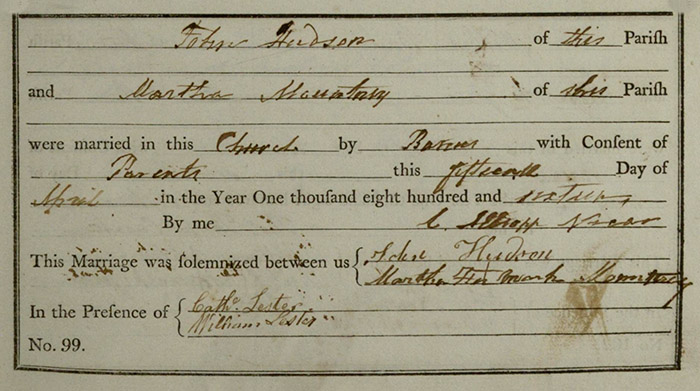 John Hudson of this Pariſh
and Martha Mountny of this Pariſh
were married in this Church by Banns with Conſent of
Parents this fifteenth Day of
April in the Year One thouſand eight hundred and sixteen
By me C. Vicar
This Marriage was ſolemnized between us { John Hudson
Martha Her Mark Mountny
In the Preſence of { Cathe. Lester
William Lester
No. 99.